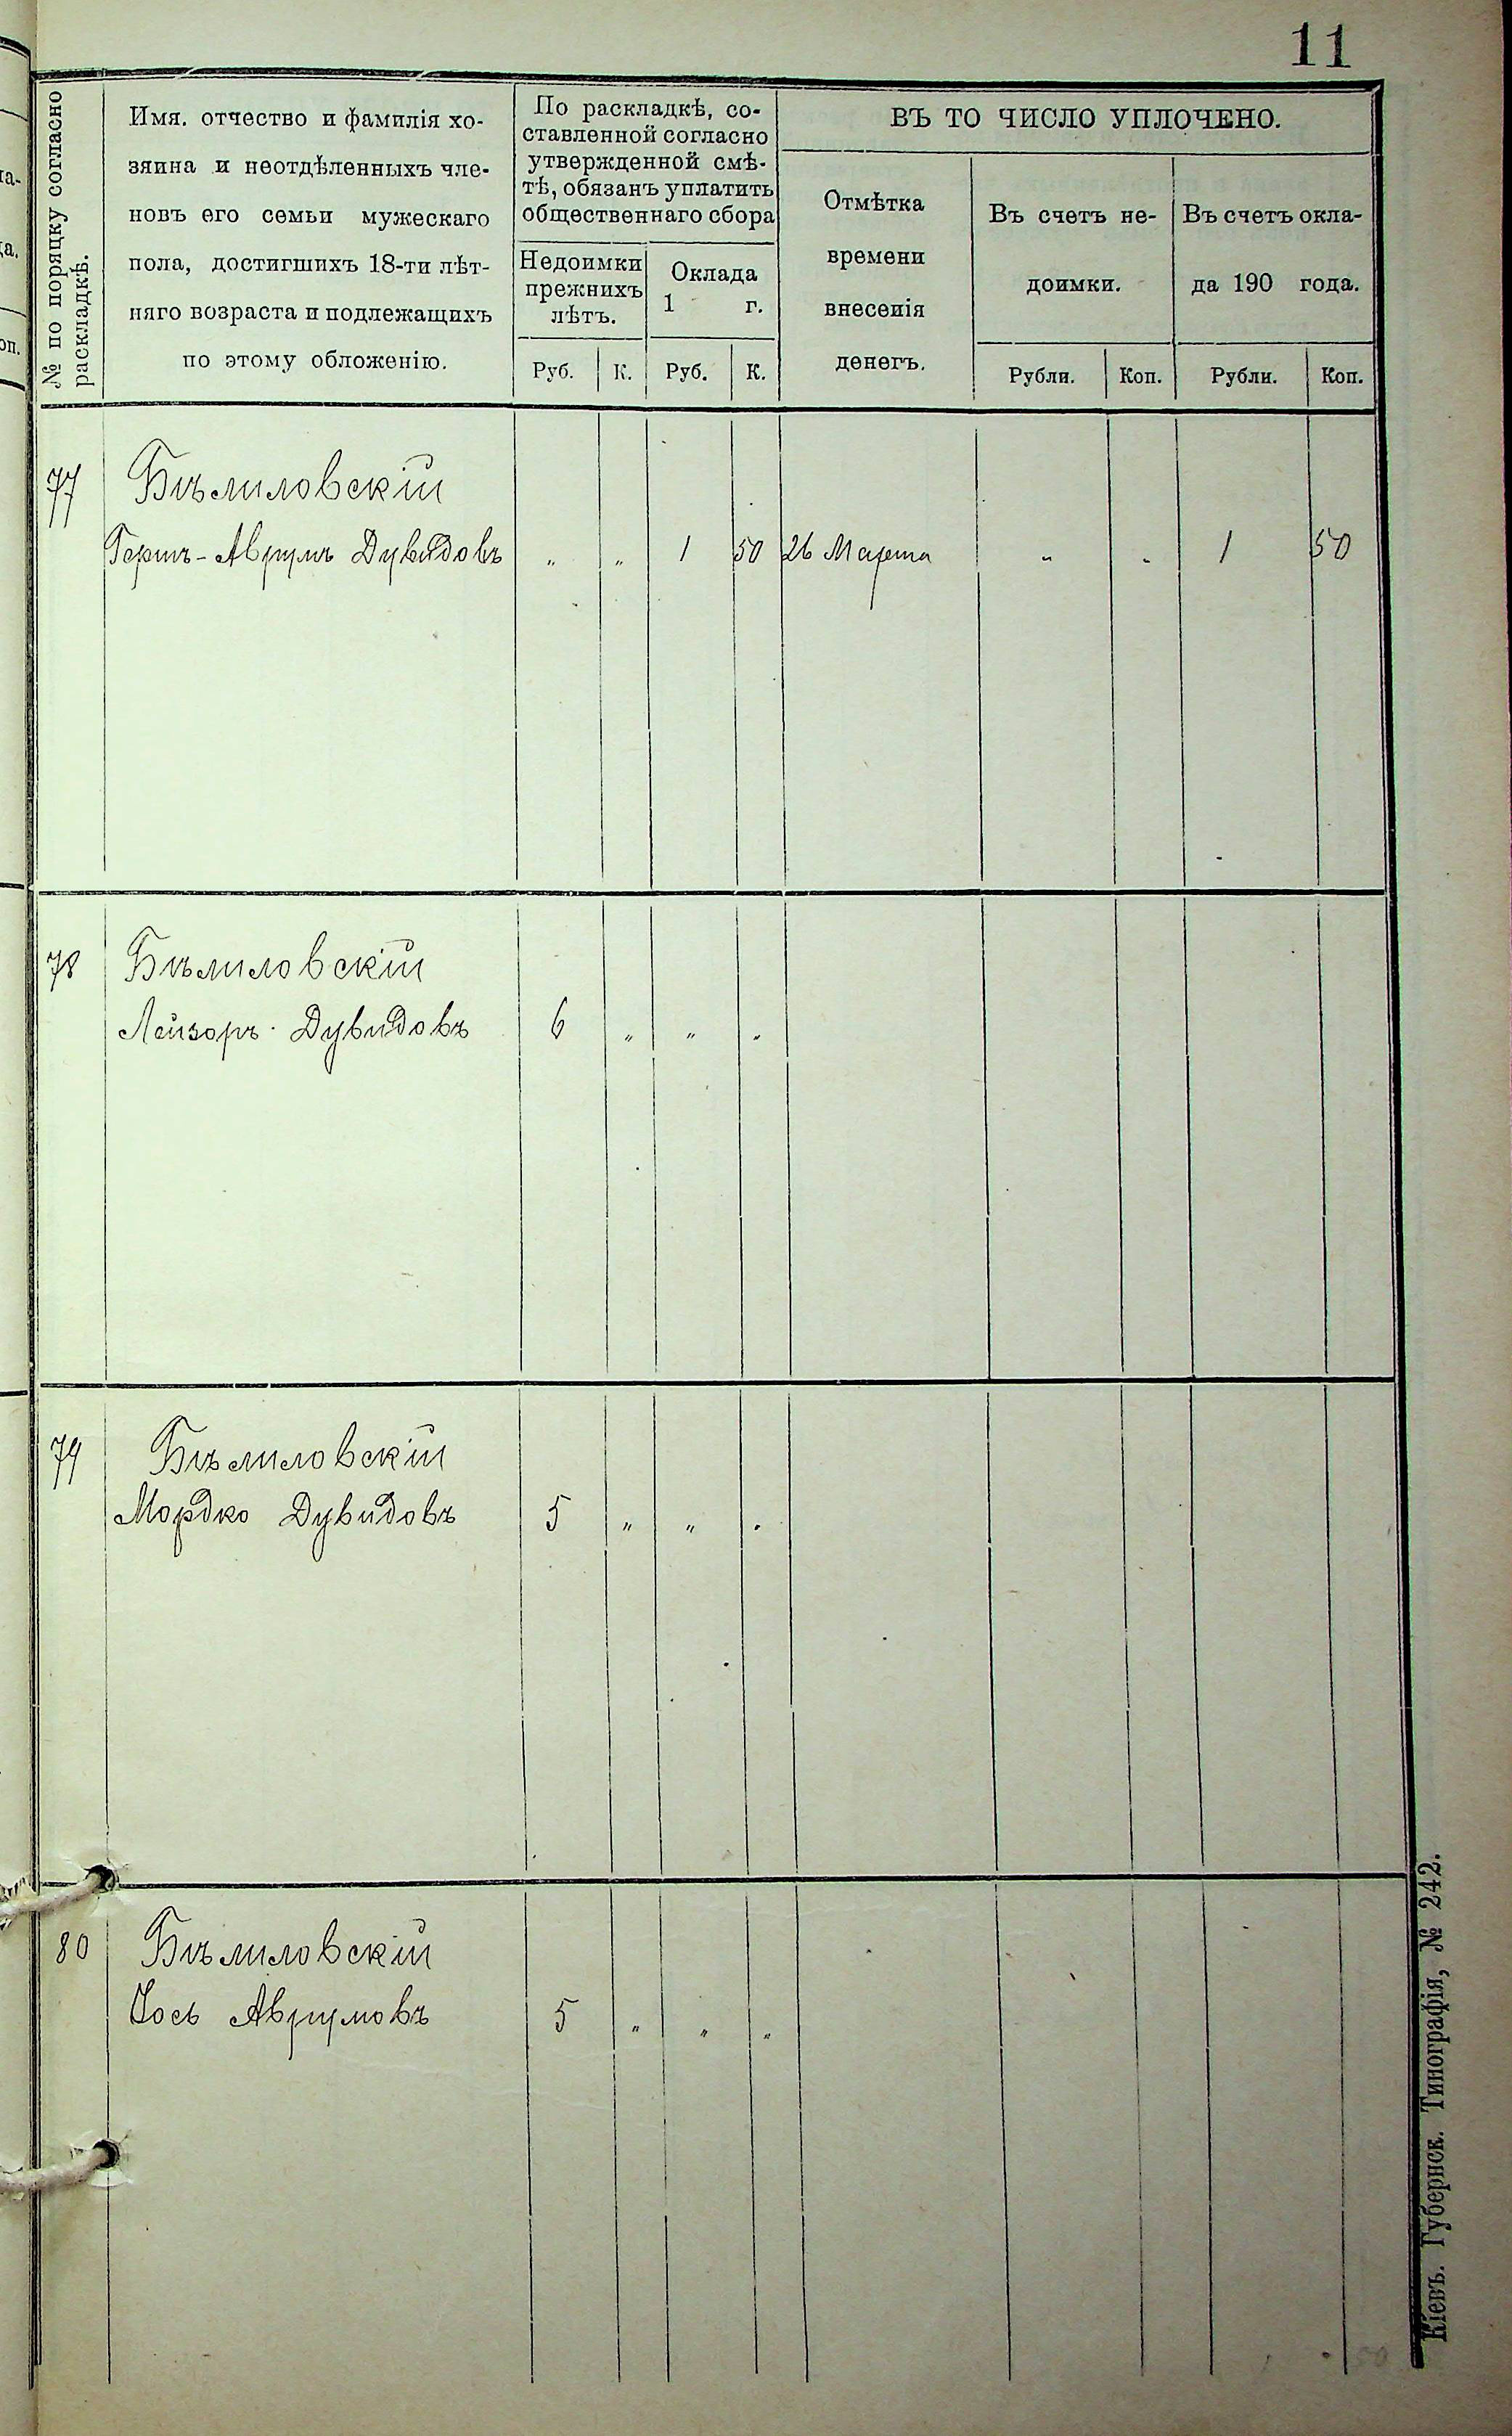 11
№ по порядку согласно
раскладкѣ.
Имя. отчество и фамилія хо-
зяина и неотдѣленныхъ чле-
новъ его семьи мужескаго
пола, достигшихъ 18-ти лѣт-
няго возраста и подлежащихъ
по этому обложенію.
По раскладкѣ, со-
ставленной согласно
утвержденной смѣ-
тѣ, обязанъ уплатить
общественнаго сбора
Недоимки
прежнихъ
лѣтъ.
Оклада
1 г.
Руб. К. Руб. К.
ВЪ ТО ЧИСЛО УПЛОЧЕНО.
Отмѣтка
времени
внесенія
денегъ.
Въ счетъ не-
доимки.
Въ счетъ окла-
да 190 года.
Рубли. Коп. Рубли. Коп.
77 Бѣлиловскій
Гершъ-Аврумъ Дувидовъ " " 1 50 26 Марта " " 1 50
78 Бѣлиловскій
Лейзоръ Дувидовъ 6 " " "
79 Бѣлиловскій
Мордко Дувидовъ 5 " " "
80 Бѣлиловскій
Іось Аврумовъ 5 " " "
Кіевъ. Губернск. Типографія, № 242.